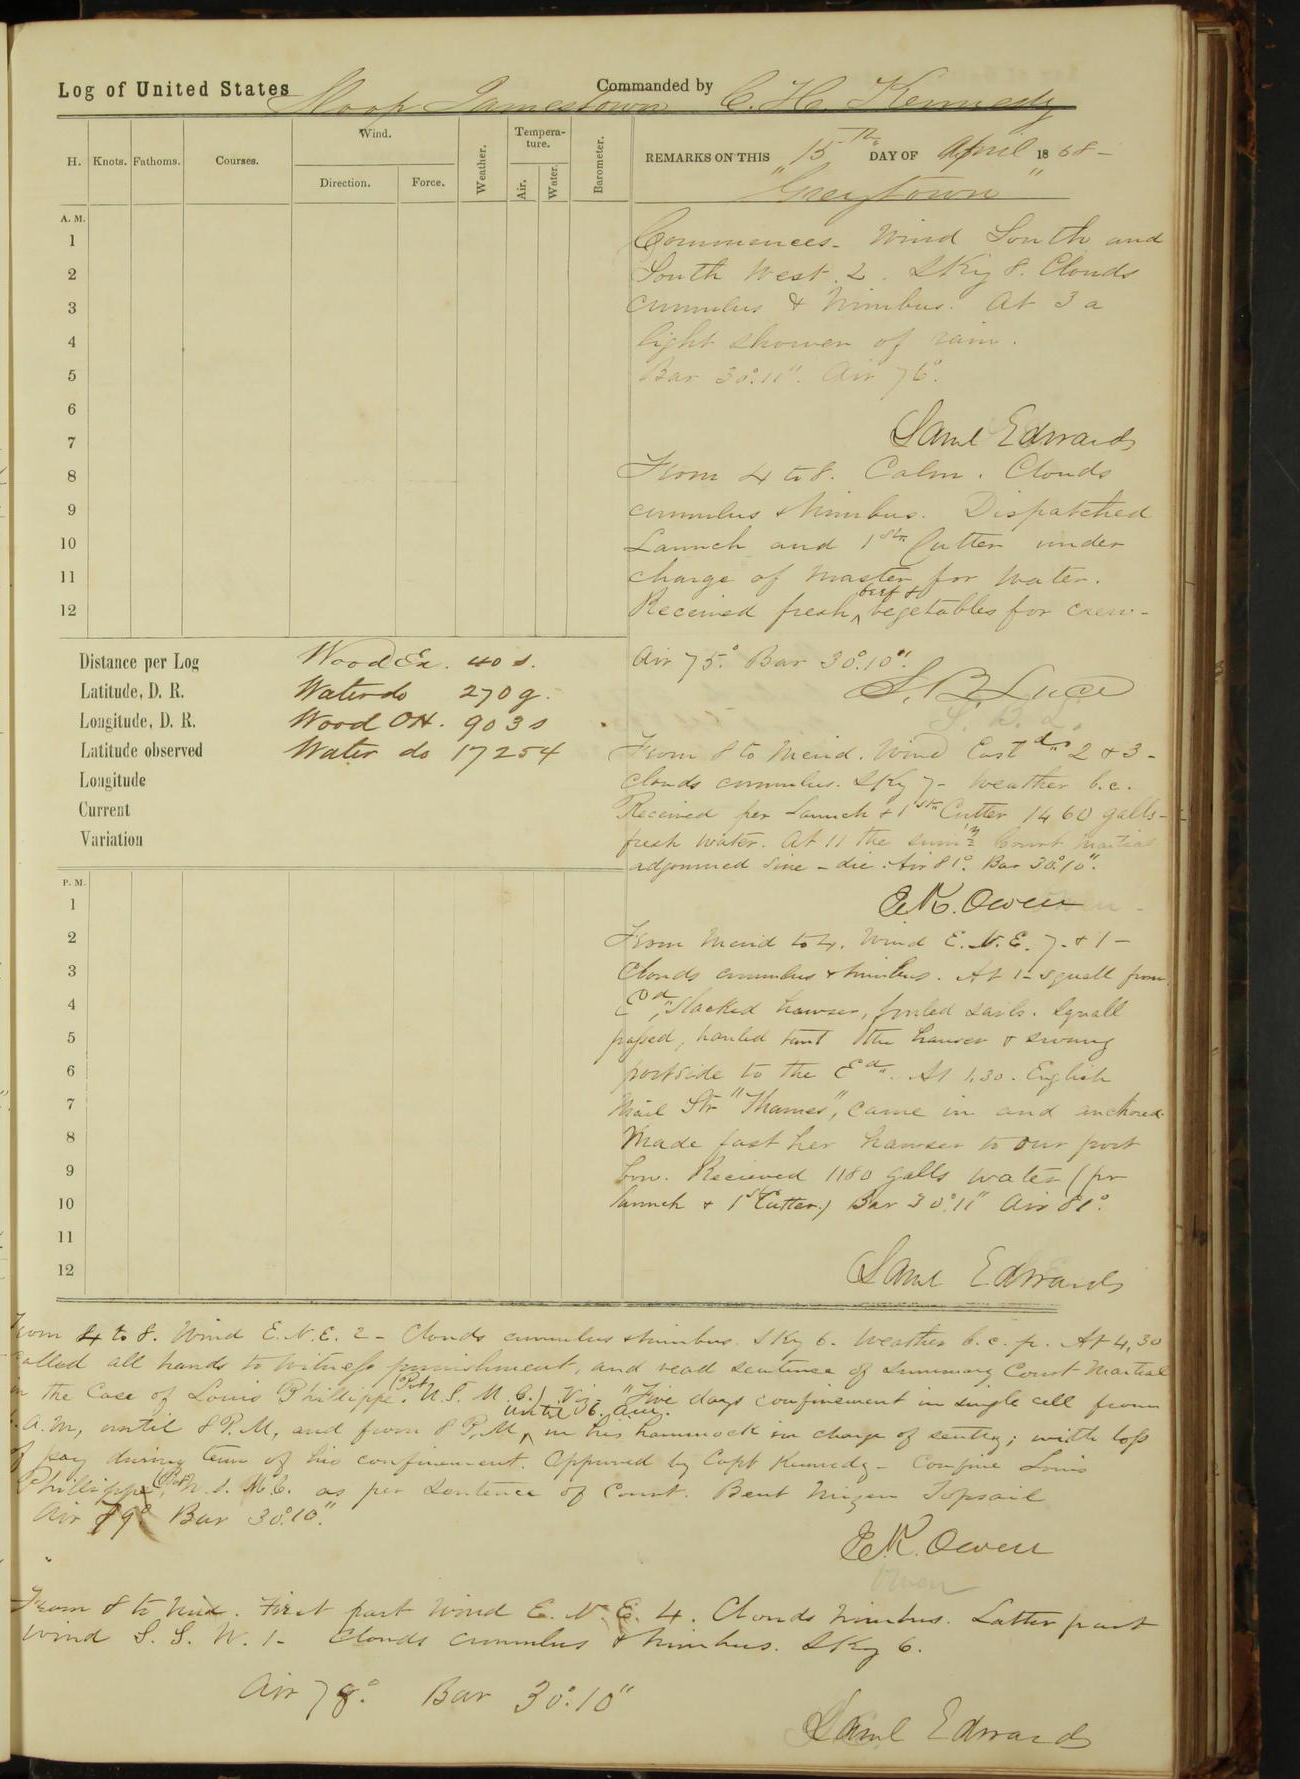 Log of United States Sloop Jamestown Commanded by C. H. Kennedy
H. Knots. Fathoms. Courses. Wind. Direction. Force. Weather. Tempera-ture. Air. Water. Barometer.
REMARKS ON THIS 15th DAY OF April 1868-
"Greytown"
A. M.
1
2
3
4
5
6
7
8
9
10
11
12
Commences- Wind South and
South West. 2. Sky 8. Clouds
cumulus & Nimbus. At 3 a
light shower of rain.
Bar 30°.11". Air 76°.
Saml Edwards
From 4 to 8. Calm. Clouds
cumulus & Nimbus. Dispatched
Launch and 1st Cutter under
charge of Master for Water.
Received fresh beef & vegetables for crew-
Air 75.° Bar 30°.10".
S. B. Luce
S. B. L.
Distance per Log Wood Ex. 40 s.
Latitude, D. R. Water do 270 g.
Longitude, D. R. Wood OH. 903 s
Latitude observed Water do 17254
Longitude
Current
Variation
From 8 to Merid. Wind Eastd 2 & 3-
Clouds cumulus. Sky 7- Weather b.c.
Received per Launch & 1st Cutter 1460 galls-
fresh water. At 11 the Court Martial
adjourned sine-die. Air 81°. Bar 30°.10".
E. K. Owen
P. M.
1
2
3
4
5
6
7
8
9
10
11
12
From Merid to 4. Wind E. N. E. 7. & 1-
Clouds cumulus & Nimbus. At 1- squall from
Ed, slacked hawser, furled sails. Squall
passed, hauled taut the hawser & swung
portside to the Ed. At 1.30. English
Mail Str "Thames", came in and anchored.
Made fast her hawser to our port
bow. Recieved 1180 galls water (pr
launch & 1st Cutter.) Bar 30°.11" Air 81°.
Saml Edwards
From 4 to 8. Wind E. N. E. 2- Clouds cumulus & Nimbus. Sky 6. Weather b. c. p. At 4,30
called all hands to witness punishment, and read sentence of Summary Court Martial
in the Case of Louis Phillippe. (Pvt U. S. M. C.) Viz "Five days confinement in single cell from
A. M, until 8 P. M, and from 8 P. M until 6. a.m. in his hammock in charge of sentry; with loss
of pay during term of his confinement. Approved by Capt Kennedy- Confine Louis
Phillippe (Pvt U. S. M. C. as per Sentence of Court. Bent Mizen Topsail
Air 79° Bar 30°.10".
E. K. Owen
Owen
From 8 to Mid. First part Wind E. N. E. 4. Clouds Nimbus. Latter part
Wind S. S. W. 1- Clouds cumulus & Nimbus. Sky 6.
Air 78°. Bar 30°.10"
Saml Edwards